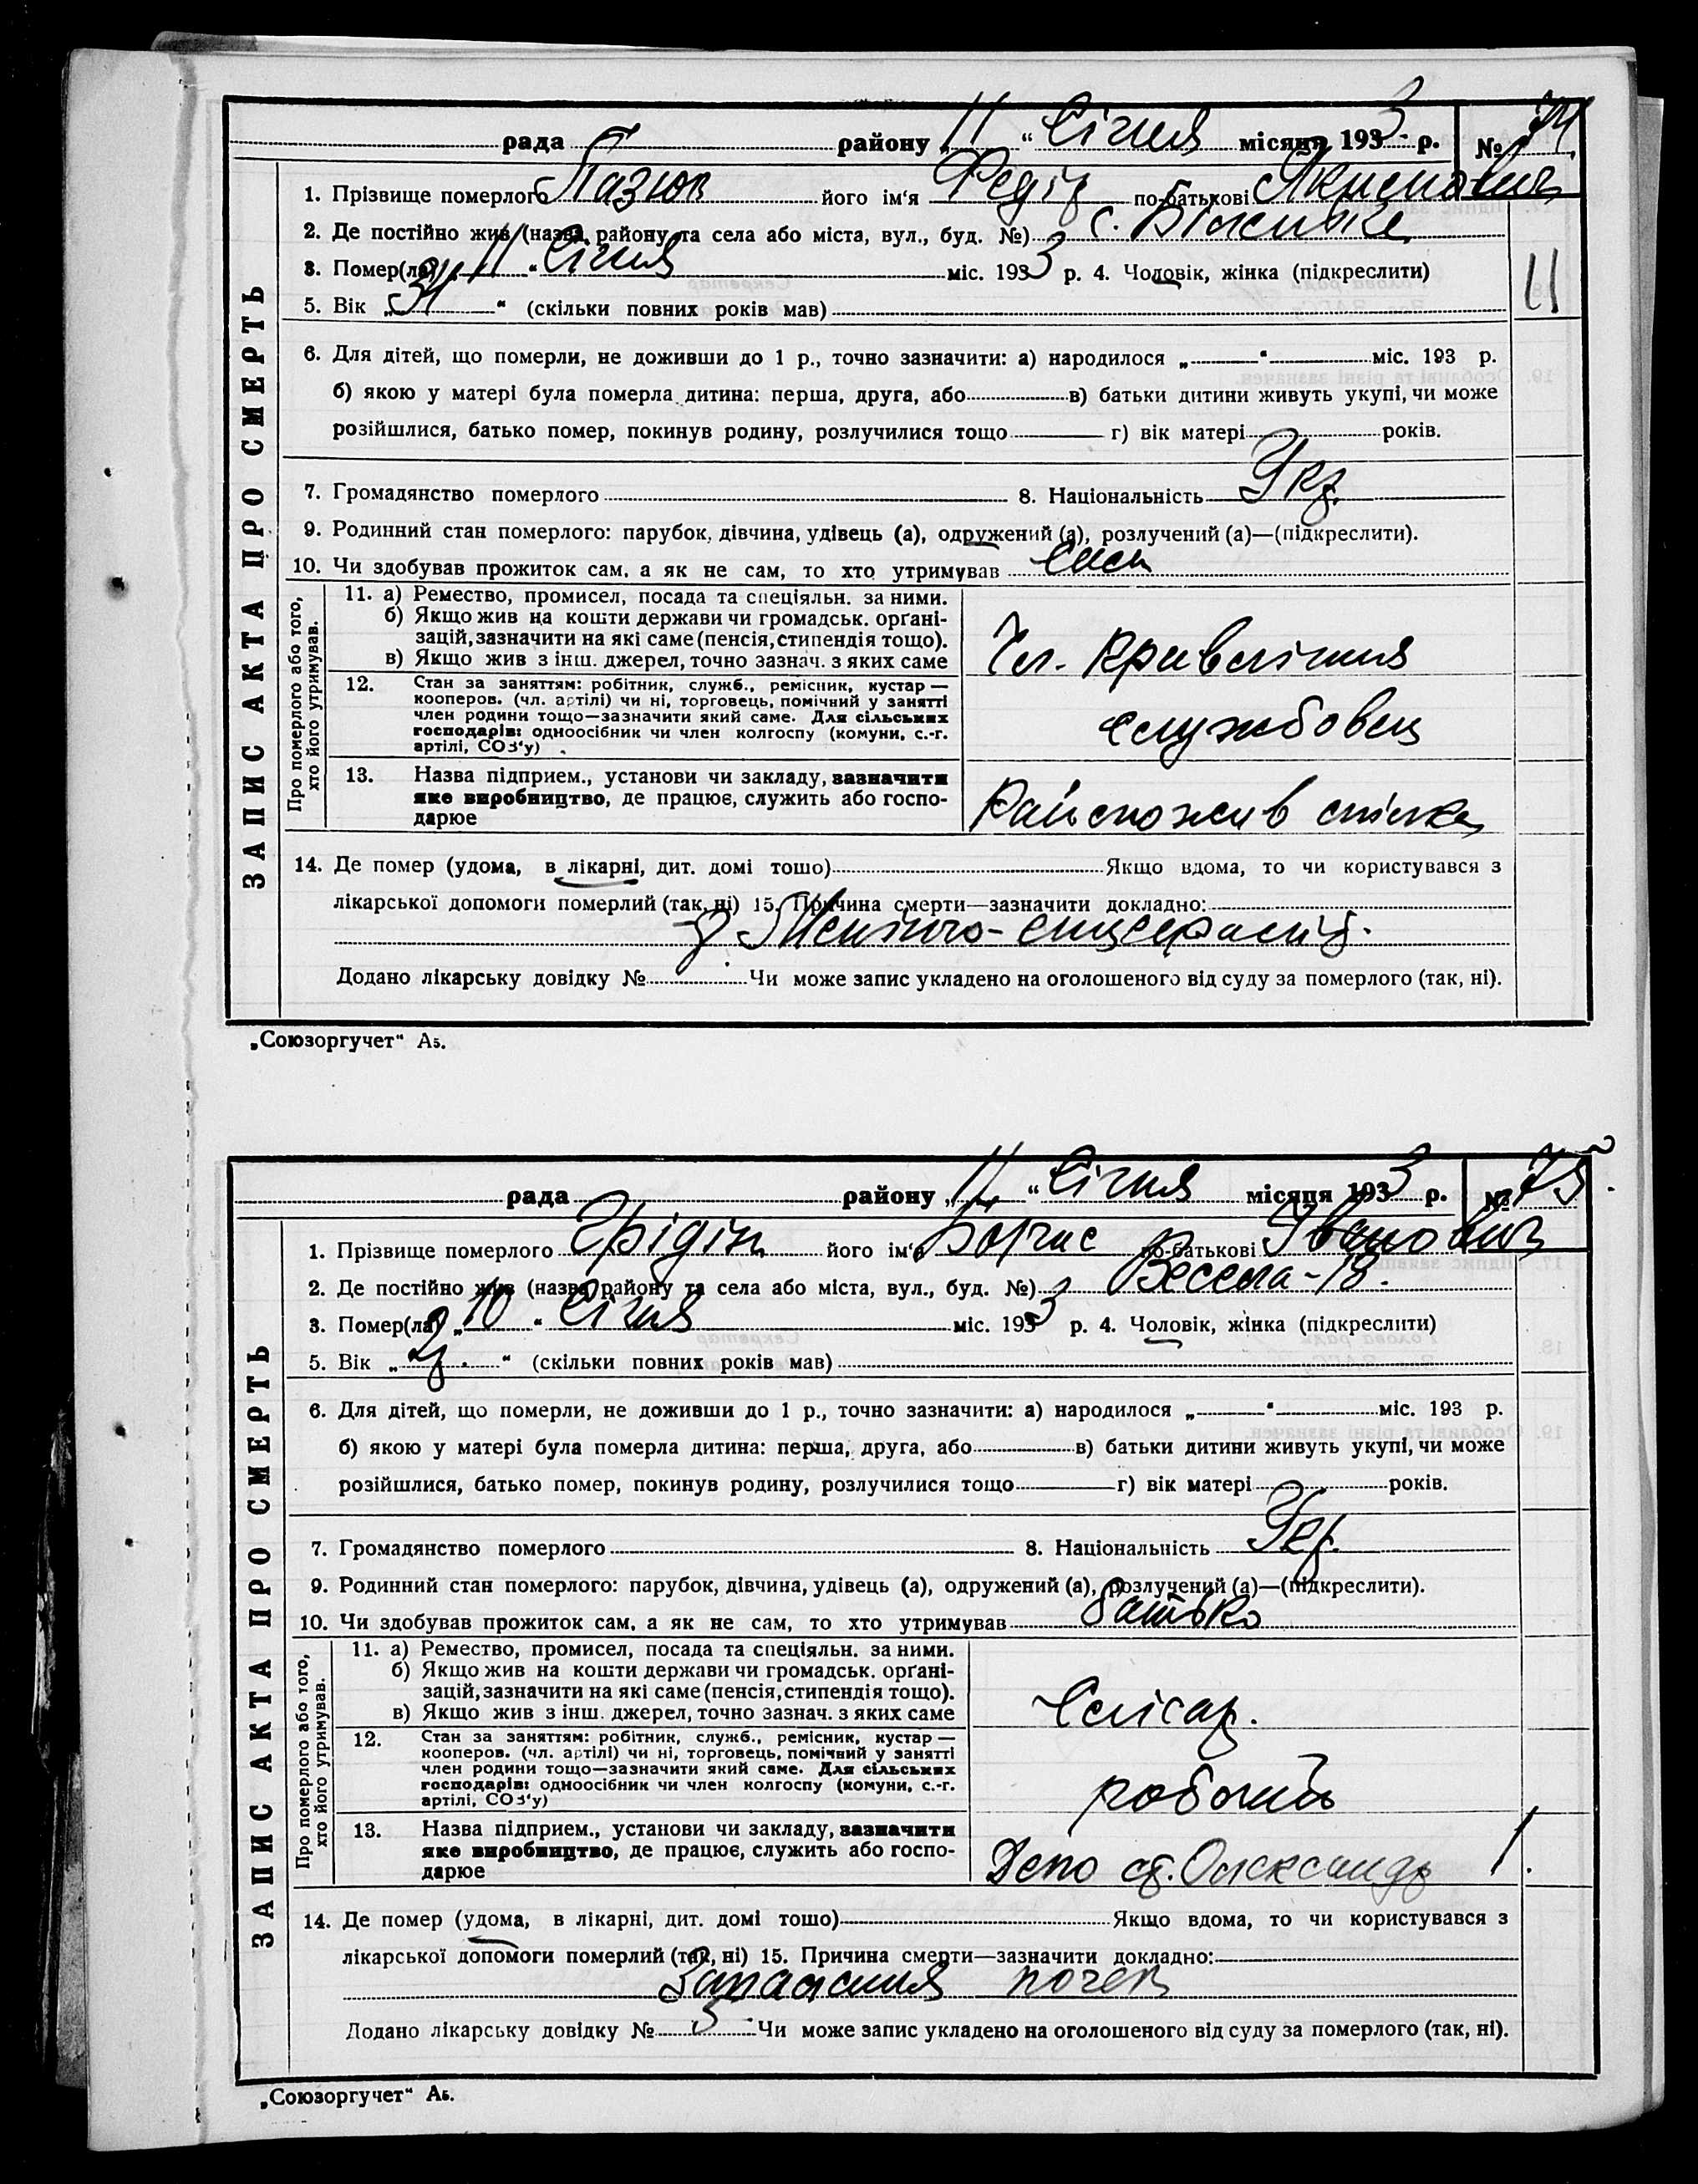 рада району „11“ Січня місяця 1933 р. № 74
1. Прізвище померлого Пазюк його ім‘я Федір по-батькові
2. Де постійно жив (назва району та села або міста, вул., буд. №) с.
3. Помер(ла) „11“ Січня міс. 1933 р. 4. Чоловік, жінка (підкреслити)
5. Вік „34“ (скільки повних років мав)
11
6. Для дітей, що померли, не доживши до 1 р., точно зазначити: а) народилося „ “ міс. 193 р.
б) якою у матері була померла дитина: перша, друга, або в) батьки дитини живуть укупі, чи може
розійшлися, батько помер, покинув родину, розлучилися тощо г) вік матері років.
7. Громадянство померлого 8. Національність Укр.
9. Родинний стан померлого: парубок, дівчина, удівець (а), одружений (а), розлучений (а)—(підкреслити).
10. Чи здобував прожиток сам, а як не сам, то хто утримував Сам
ЗАПИС АКТА ПРО СМЕРТЬ
Про померлого або того, хто його утримував.
11. а) Ремество, промисел, посада та спеціяльн. за ними.
б) Якщо жив на кошти держави чи громадськ. орґані-
зацій, зазначити на які саме (пенсія, стипендія тощо).
в) Якщо жив з інш. джерел, точно зазнач. з яких саме
Чл. Правління
12. Стан за заняттям: робітник, служб., ремісник, кустар —
кооперов. (чл. артілі) чи ні, торговець, помічний у занятті
член родини тощо—зазначити який саме. Для сільських
господарів: одноосібник чи член колгоспу (комуни, с.-г.
артілі, СОЗ‘у)
службовец
13. Назва підприєм., установи чи закладу, зазначити
яке виробництво, де працює, служить або госпо-
дарює
Райспожив спілка
14. Де помер (удома, в лікарні, дит. домі тощо) Якщо вдома, то чи користувався з
лікарської допомоги померлий (так, ні) 15. Причина смерти—зазначити докладно:
Додано лікарську довідку № Чи може запис укладено на оголошеного від суду за померлого (так, ні).
„Союзоргучет“ А5.
рада району „11“ Січня місяця 1933 р. № 75
1. Прізвище померлого Грідін його ім‘я Борис по-батькові Іванович
2. Де постійно жив (назва району та села або міста, вул., буд. №) Весела-18.
3. Помер(ла) „10“ Січня міс. 1933 р. 4. Чоловік, жінка (підкреслити)
5. Вік „2 “ (скільки повних років мав)
6. Для дітей, що померли, не доживши до 1 р., точно зазначити: а) народилося „ “ міс. 193 р.
б) якою у матері була померла дитина: перша, друга, або в) батьки дитини живуть укупі, чи може
розійшлися, батько помер, покинув родину, розлучилися тощо г) вік матері років.
7. Громадянство померлого 8. Національність Укр.
9. Родинний стан померлого: парубок, дівчина, удівець (а), одружений (а), розлучений (а)—(підкреслити).
10. Чи здобував прожиток сам, а як не сам, то хто утримував батько
ЗАПИС АКТА ПРО СМЕРТЬ
Про померлого або того, хто його утримував.
11. а) Ремество, промисел, посада та спеціяльн. за ними.
б) Якщо жив на кошти держави чи громадськ. орґані-
зацій, зазначити на які саме (пенсія, стипендія тощо).
в) Якщо жив з інш. джерел, точно зазнач. з яких саме
Слісар.
12. Стан за заняттям: робітник, служб., ремісник, кустар —
кооперов. (чл. артілі) чи ні, торговець, помічний у занятті
член родини тощо—зазначити який саме. Для сільських
господарів: одноосібник чи член колгоспу (комуни, с.-г.
артілі, СОЗ‘у)
робочий
13. Назва підприєм., установи чи закладу, зазначити
яке виробництво, де працює, служить або госпо-
дарює
Депо ст. Олександр
14. Де помер (удома, в лікарні, дит. домі тощо) Якщо вдома, то чи користувався з
лікарської допомоги померлий (так, ні) 15. Причина смерти—зазначити докладно:
Запалення почек
Додано лікарську довідку № 5 Чи може запис укладено на оголошеного від суду за померлого (так, ні).
„Союзоргучет“ А5.